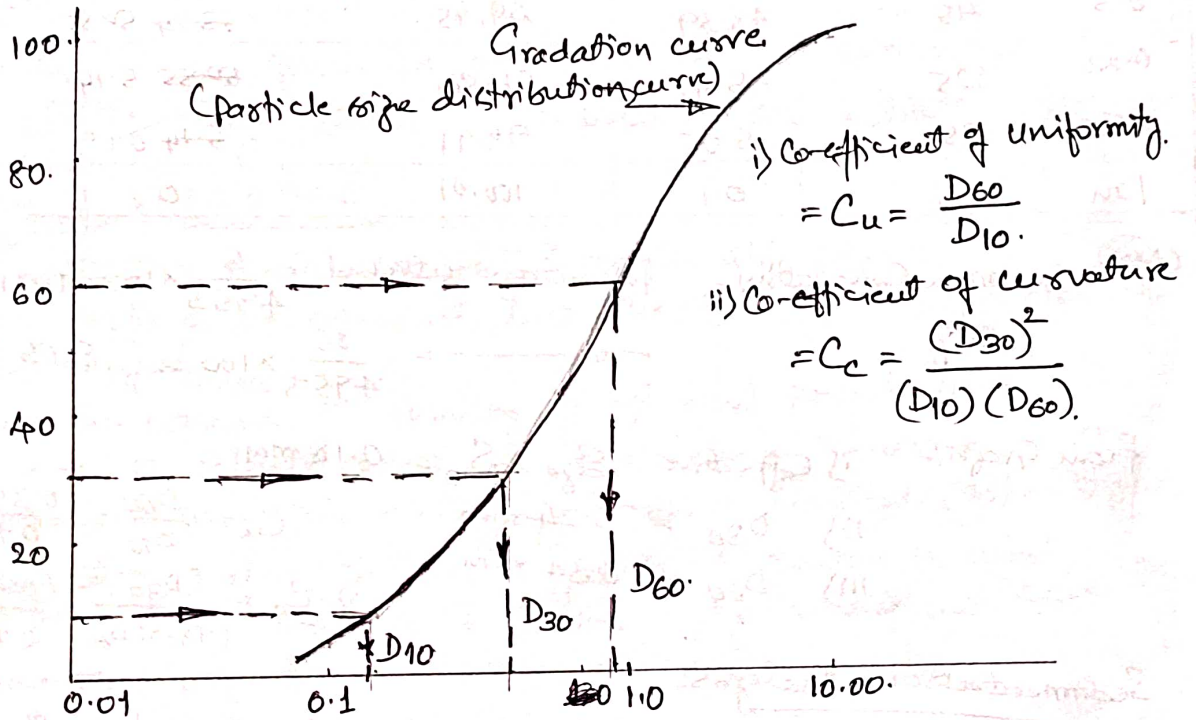 Gradation curve
(particle size distribution curve)
100.
80.
60
40
20
i) Co-efficient of uniformity.
= Cu = D60 / D10.
ii) Co-efficient of curvature
= Cc = (D30)² / (D10) (D60).
D10
D30
D60.
0.01 0.1 1.0 10.00.